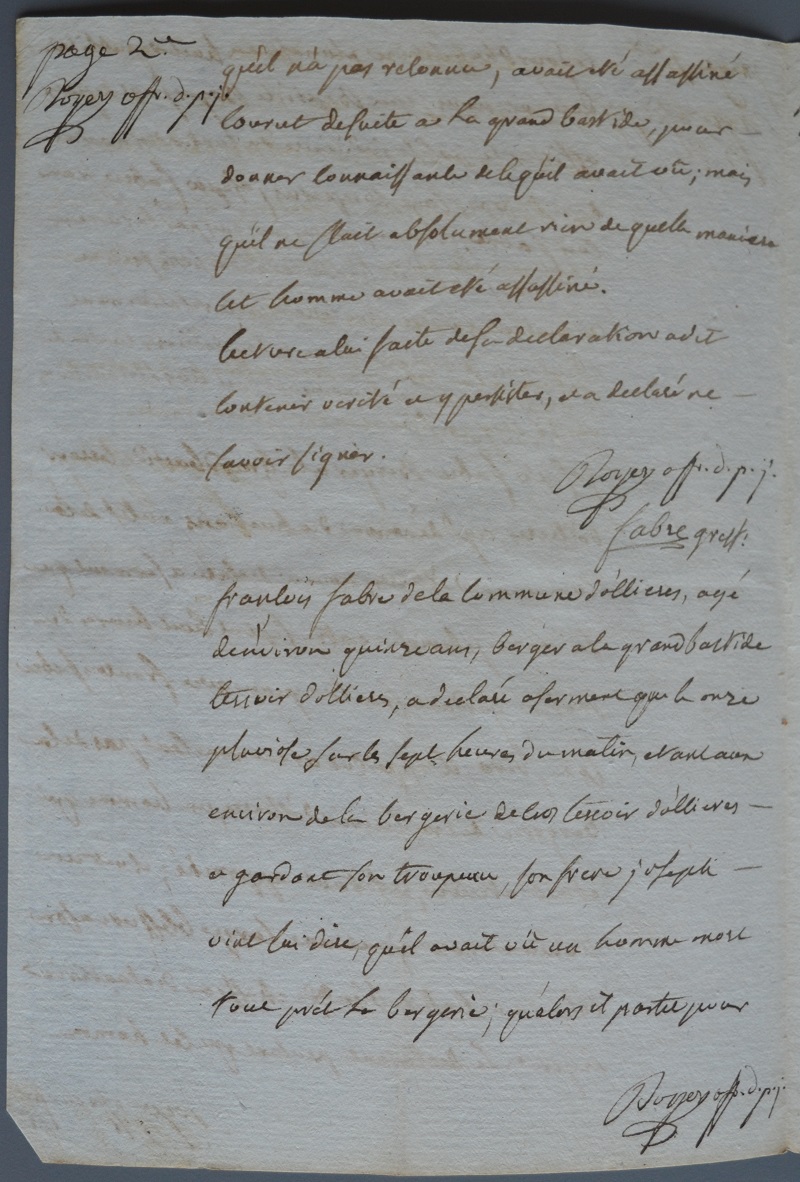 page 2.e
Royer offr. d. p. j.
qu'il n'a pas reconnu, avait eté assassiné
courut desuite a la grand bastide, pour
donner connaissance dece qu'il avait vû; mais
qu'il ne scait absolument rien de quelle maniere
cet homme avait eté assassiné.
lecture a lui faite desa declaration a dit
contenir verité et y persister, et a declaré ne
savoir signer.
Royer offr. d. p. j.
fabre greff.
françois fabre dela commune d'ollieres, agé
d'environ quinze ans, berger a la grand bastide
terroir d'ollieres, a declaré a serment que le onze
pluviose sur les sept heures du matin, etant aux
environ de la bergerie terroir d'ollieres
et gardant son troupeau, son frere joseph
vint lui dire, qu'il avait vû un homme mort
tout prét la bergerie; qu'alors il partit pour
Royer offr. d. p. j.